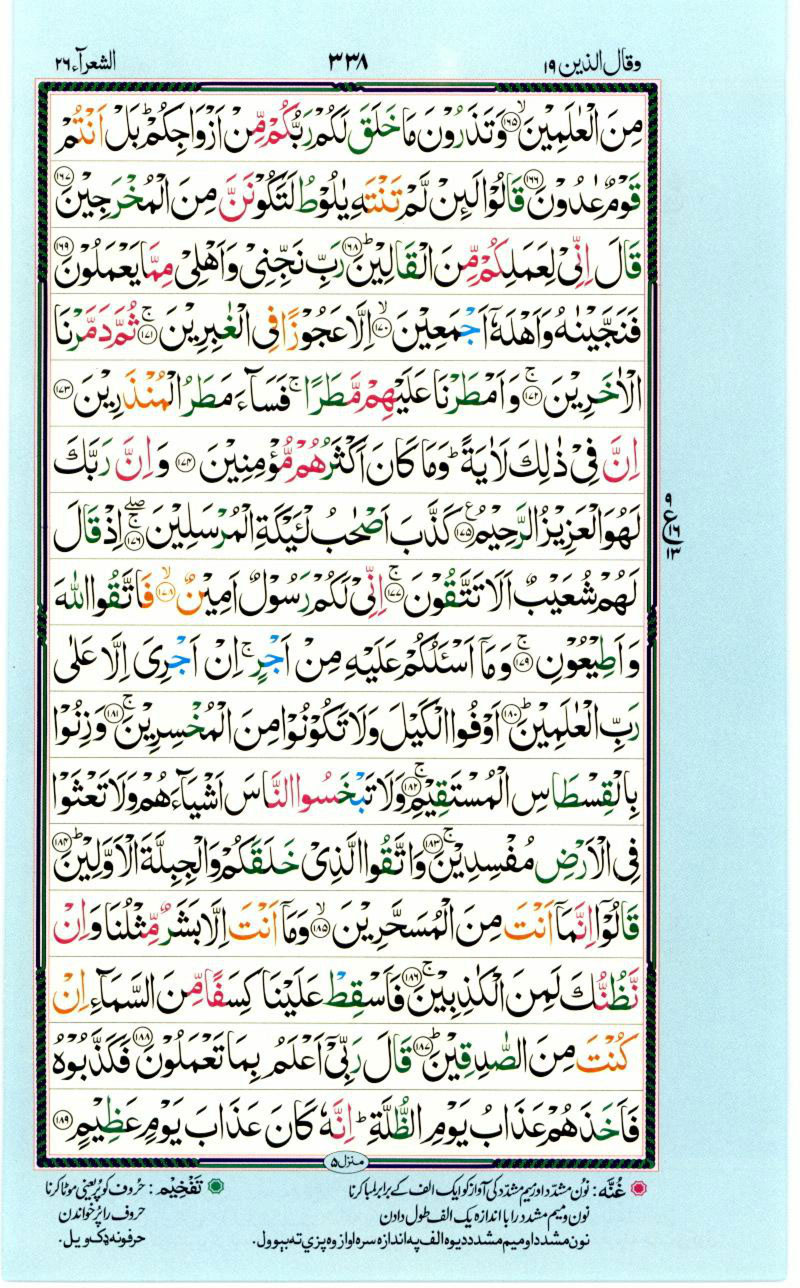 وقال الذين ۱۹
۳۳۸
الشعرآء ۲۶
مِنَ الْعٰلَمِيْنَ ۙ﴿۱۶۵﴾ وَتَذَرُوْنَ مَا خَلَقَ لَكُمْ رَبُّكُمْ مِّنْ اَزْوَاجِكُمْ ؕ بَلْ اَنْتُمْ
قَوْمٌ عٰدُوْنَ ﴿۱۶۶﴾ قَالُوْا لَئِنْ لَّمْ تَنْتَهِ يٰلُوْطُ لَتَكُوْنَنَّ مِنَ الْمُخْرَجِيْنَ ﴿۱۶۷﴾
قَالَ اِنِّىْ لِعَمَلِكُمْ مِّنَ الْقَالِيْنَ ؕ﴿۱۶۸﴾ رَبِّ نَجِّنِىْ وَاَهْلِىْ مِمَّا يَعْمَلُوْنَ ﴿۱۶۹﴾
فَنَجَّيْنٰهُ وَاَهْلَهٗۤ اَجْمَعِيْنَ ۙ﴿۱۷۰﴾ اِلَّا عَجُوْزًا فِى الْغٰبِرِيْنَ ۚ﴿۱۷۱﴾ ثُمَّ دَمَّرْنَا
الْاٰخَرِيْنَ ۚ﴿۱۷۲﴾ وَاَمْطَرْنَا عَلَيْهِمْ مَّطَرًا ۚ فَسَآءَ مَطَرُ الْمُنْذَرِيْنَ ﴿۱۷۳﴾
اِنَّ فِىْ ذٰلِكَ لَاٰيَةً ؕ وَمَا كَانَ اَكْثَرُهُمْ مُّؤْمِنِيْنَ ﴿۱۷۴﴾ وَاِنَّ رَبَّكَ
لَهُوَ الْعَزِيْزُ الرَّحِيْمُ ۠﴿۱۷۵﴾ كَذَّبَ اَصْحٰبُ لْئَيْكَةِ الْمُرْسَلِيْنَ ۖۚ﴿۱۷۶﴾ اِذْ قَالَ
۹
ع
۱۶
۱۳
لَهُمْ شُعَيْبٌ اَلَا تَتَّقُوْنَ ۚ﴿۱۷۷﴾ اِنِّىْ لَكُمْ رَسُوْلٌ اَمِيْنٌ ۙ﴿۱۷۸﴾ فَاتَّقُوا اللّٰهَ
وَاَطِيْعُوْنِ ۚ﴿۱۷۹﴾ وَمَاۤ اَسْئَلُكُمْ عَلَيْهِ مِنْ اَجْرٍ ۚ اِنْ اَجْرِىَ اِلَّا عَلٰى
رَبِّ الْعٰلَمِيْنَ ؕ﴿۱۸۰﴾ اَوْفُوا الْكَيْلَ وَلَا تَكُوْنُوْا مِنَ الْمُخْسِرِيْنَ ۚ﴿۱۸۱﴾ وَزِنُوْا
بِالْقِسْطَاسِ الْمُسْتَقِيْمِ ۚ﴿۱۸۲﴾ وَلَا تَبْخَسُوا النَّاسَ اَشْيَآءَهُمْ وَلَا تَعْثَوْا
فِى الْاَرْضِ مُفْسِدِيْنَ ۚ﴿۱۸۳﴾ وَاتَّقُوا الَّذِىْ خَلَقَكُمْ وَالْجِبِلَّةَ الْاَوَّلِيْنَ ؕ﴿۱۸۴﴾
قَالُوْۤا اِنَّمَاۤ اَنْتَ مِنَ الْمُسَحَّرِيْنَ ۙ﴿۱۸۵﴾ وَمَاۤ اَنْتَ اِلَّا بَشَرٌ مِّثْلُنَا وَاِنْ
نَّظُنُّكَ لَمِنَ الْكٰذِبِيْنَ ۚ﴿۱۸۶﴾ فَاَسْقِطْ عَلَيْنَا كِسَفًا مِّنَ السَّمَآءِ اِنْ
كُنْتَ مِنَ الصّٰدِقِيْنَ ؕ﴿۱۸۷﴾ قَالَ رَبِّىْۤ اَعْلَمُ بِمَا تَعْمَلُوْنَ ﴿۱۸۸﴾ فَكَذَّبُوْهُ
فَاَخَذَهُمْ عَذَابُ يَوْمِ الظُّلَّةِ ؕ اِنَّهٗ كَانَ عَذَابَ يَوْمٍ عَظِيْمٍ ﴿۱۸۹﴾
منزل ۵
غُنَّه: نوُن مشدّد اور میم مشدّد کی آواز کو ایک الف کے برابر لمبا کرنا
نون و میم مشدد را با اندازه یک الف طول دادن
نون مشدد او میم مشدد د دیوه الف په اندازه سره اواز وه پزې ته بېوول.
تَفْخِيْم: حُروف کو پُر یعنی موٹا کرنا
حروف را پُر خواندن
حرفونه ډک ویل.